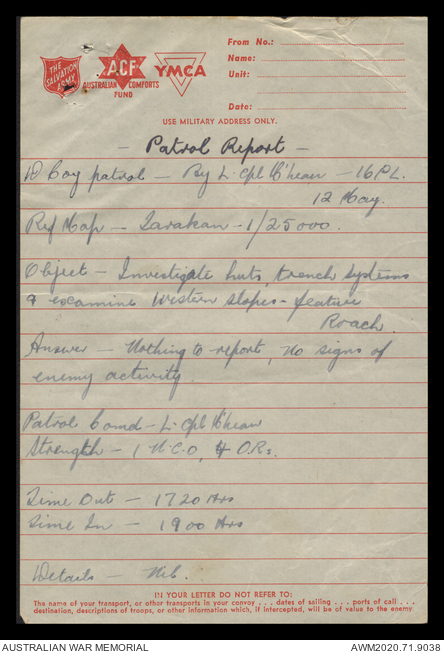 THE SALVATION ARMY
A.C.F
AUSTRALIAN COMFORTS FUND
YMCA
From No.:
Name:
Unit:
Date:
USE MILITARY ADDRESS ONLY.
- Patrol Report -
D Coy patrol - By L. Cpl - 16 PL.
12 May.
Ref Map - Tarakan - 1/25000.
Object - Investigate huts, trench systems
& examine Western slopes - feature
Roach.
Answer - Nothing to report, no signs of
enemy activity.
Patrol Comd - L. Cpl
Strength - 1 N.C.O, 4 O.Rs.
Time Out - 1720 Hrs
Time In - 1900 Hrs
Details - Nil.
IN YOUR LETTER DO NOT REFER TO:
The name of your transport, or other transports in your convoy . . . dates of sailing . . . ports of call . . .
destination, descriptions of troops, or other information which, if intercepted, will be of value to the enemy
AUSTRALIAN WAR MEMORIAL
AWM2020.71.9038